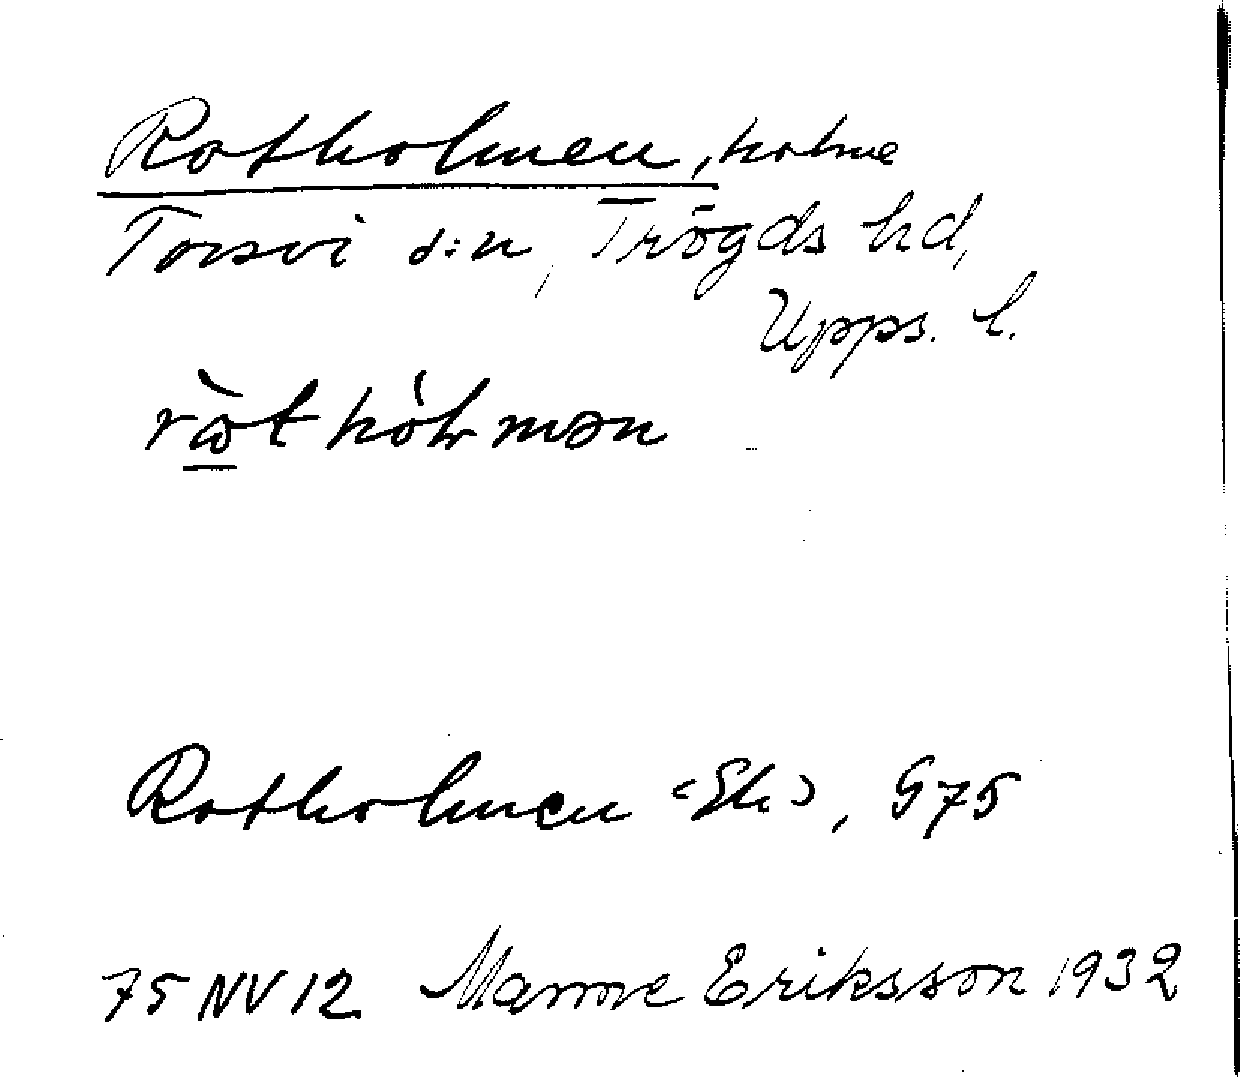 Rotholmen, holme
Torsvi s:n, Trögds hd,
Upps. l.
Rotholmen <Ek>, G75
75 NV 12 Manne Eriksson 1932